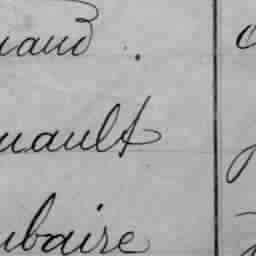 uaud .
uault
ubaire